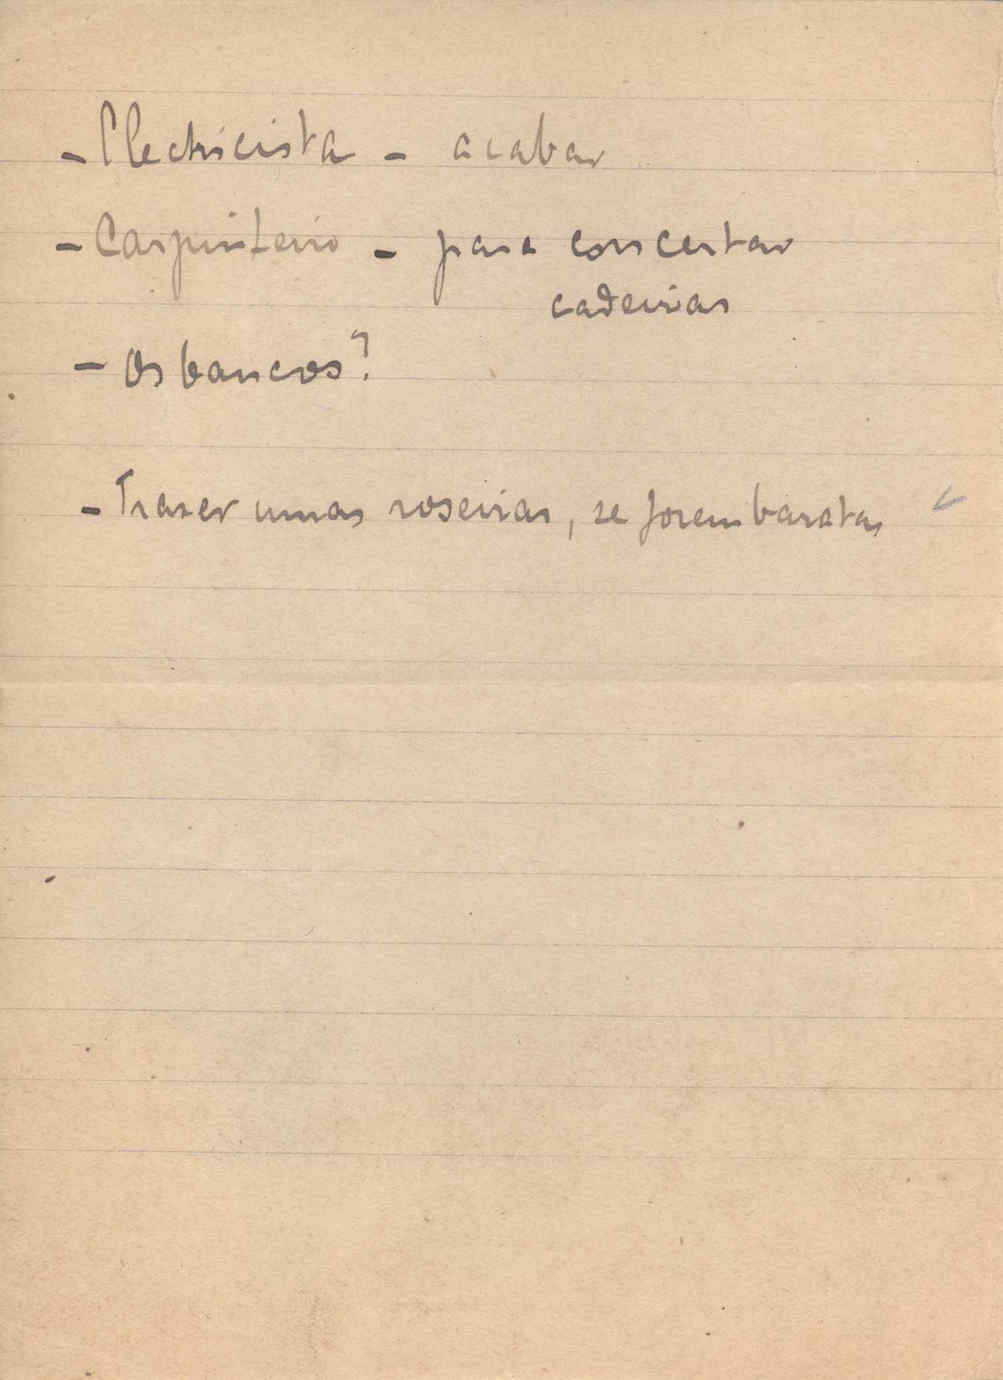 - Electricista - acabar
- Carpinteiro - para concertar
cadeiras
- Os bancos?
- Trazer umas roseiras, se forem baratas